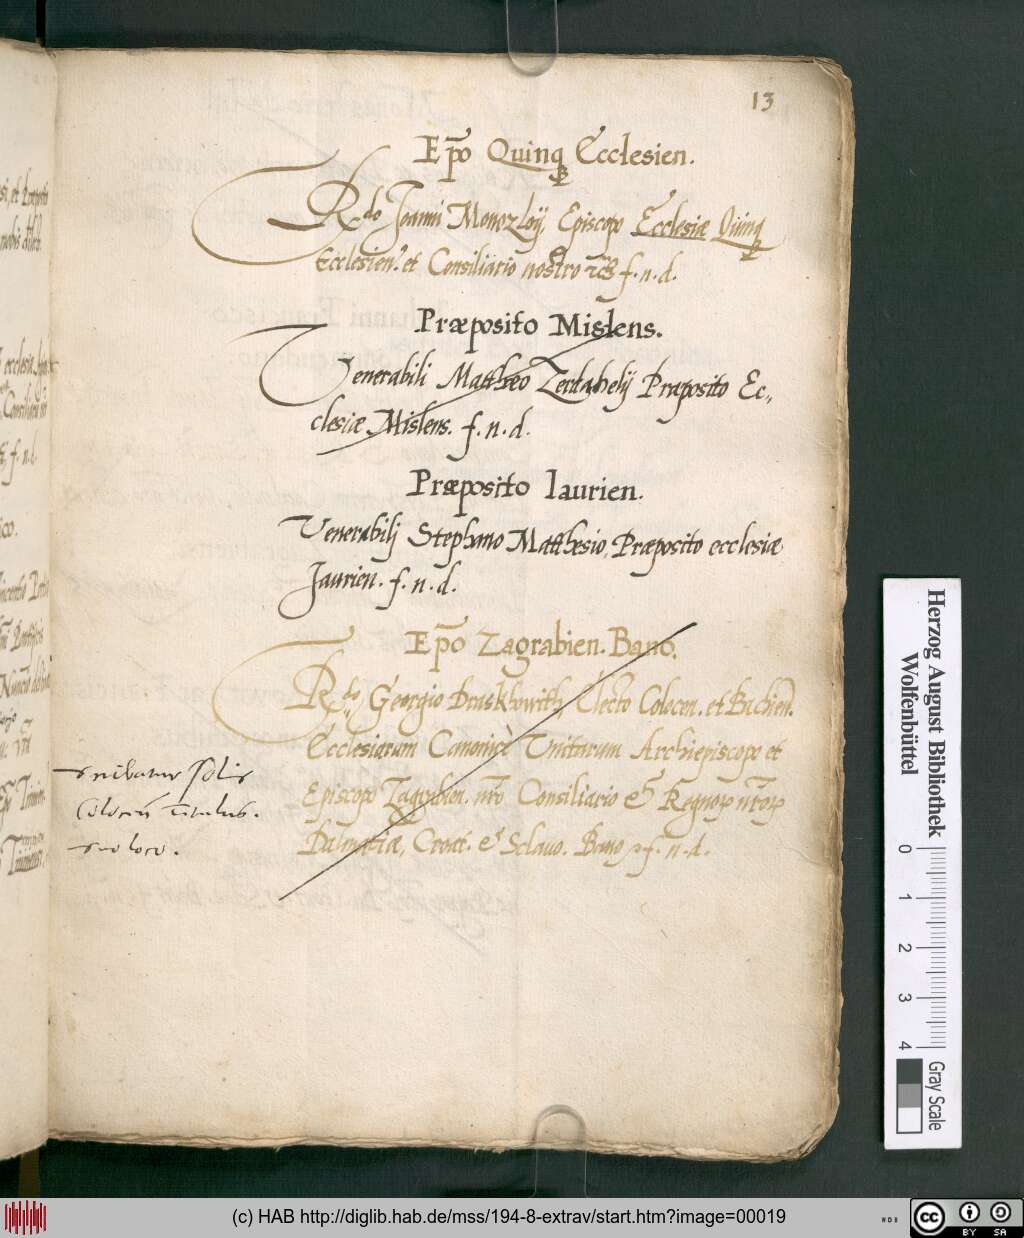 13
Ep̄o Quinq Ecclesien.
Rdo Joanni Monozloij, Episcopo Ecclesiæ Quinq
Ecclesien. et Consiliario nostro f. n. d.
Præposito Mislens.
Venerabili Matthæo Præposito Ec„
clesiæ Mislens. f. n. d.
Præposito Iaurien.
Venerabilj Stephano Matthæsio, Præposito ecclesiæ
Jaurien. f. n. d.
Ep̄o Zagrabien. Bano.
Rdo Georgio Draskhowith, Electo Colocen. et Bachien.
Ecclesiarum Canonicè Unitarum Archiepiscopo et
Episcopo Zagrabien. nr̄o Consiliario & Regnoꝝ nr̄oꝝ
Dalmatiæ, Croat. & Sclavo. Bano f. n. d.
scribatur
titulus.
suo loco.
Herzog August Bibliothek
Wolfenbüttel
0 1 2 3 4
Gray Scale
(c) HAB http://diglib.hab.de/mss/194-8-extrav/start.htm?image=00019
WDB
cc BY SA